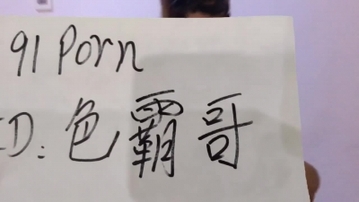 91 Porn
ID: 色霸哥